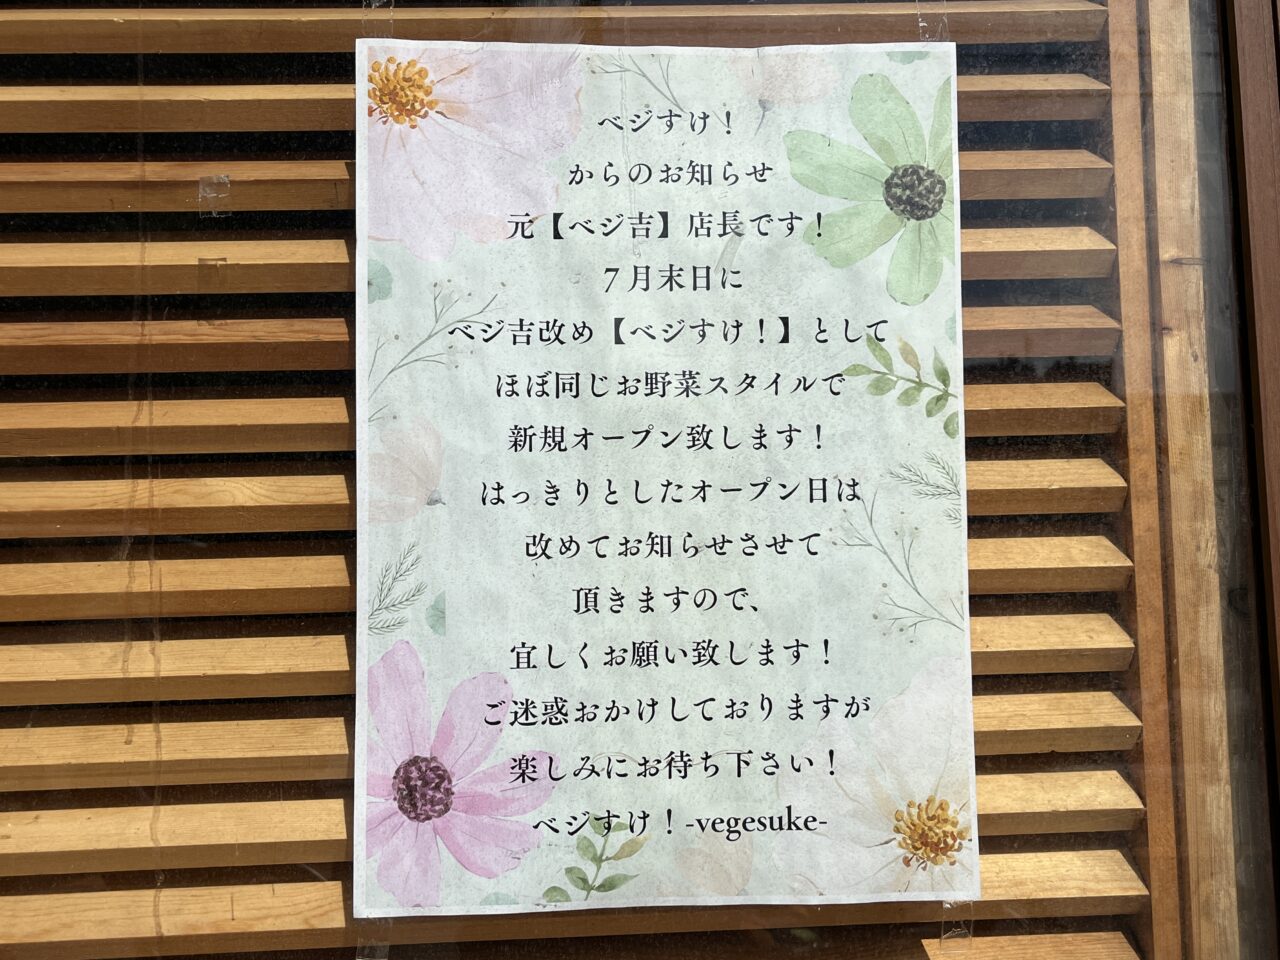 ベジすけ！
からのお知らせ
元【ベジ吉】店長です！
７月末日に
ベジ吉改め【ベジすけ！】として
ほぼ同じお野菜スタイルで
新規オープン致します！
はっきりとしたオープン日は
改めてお知らせさせて
頂きますので、
宜しくお願い致します！
ご迷惑おかけしておりますが
楽しみにお待ち下さい！
ベジすけ！-vegesuke-